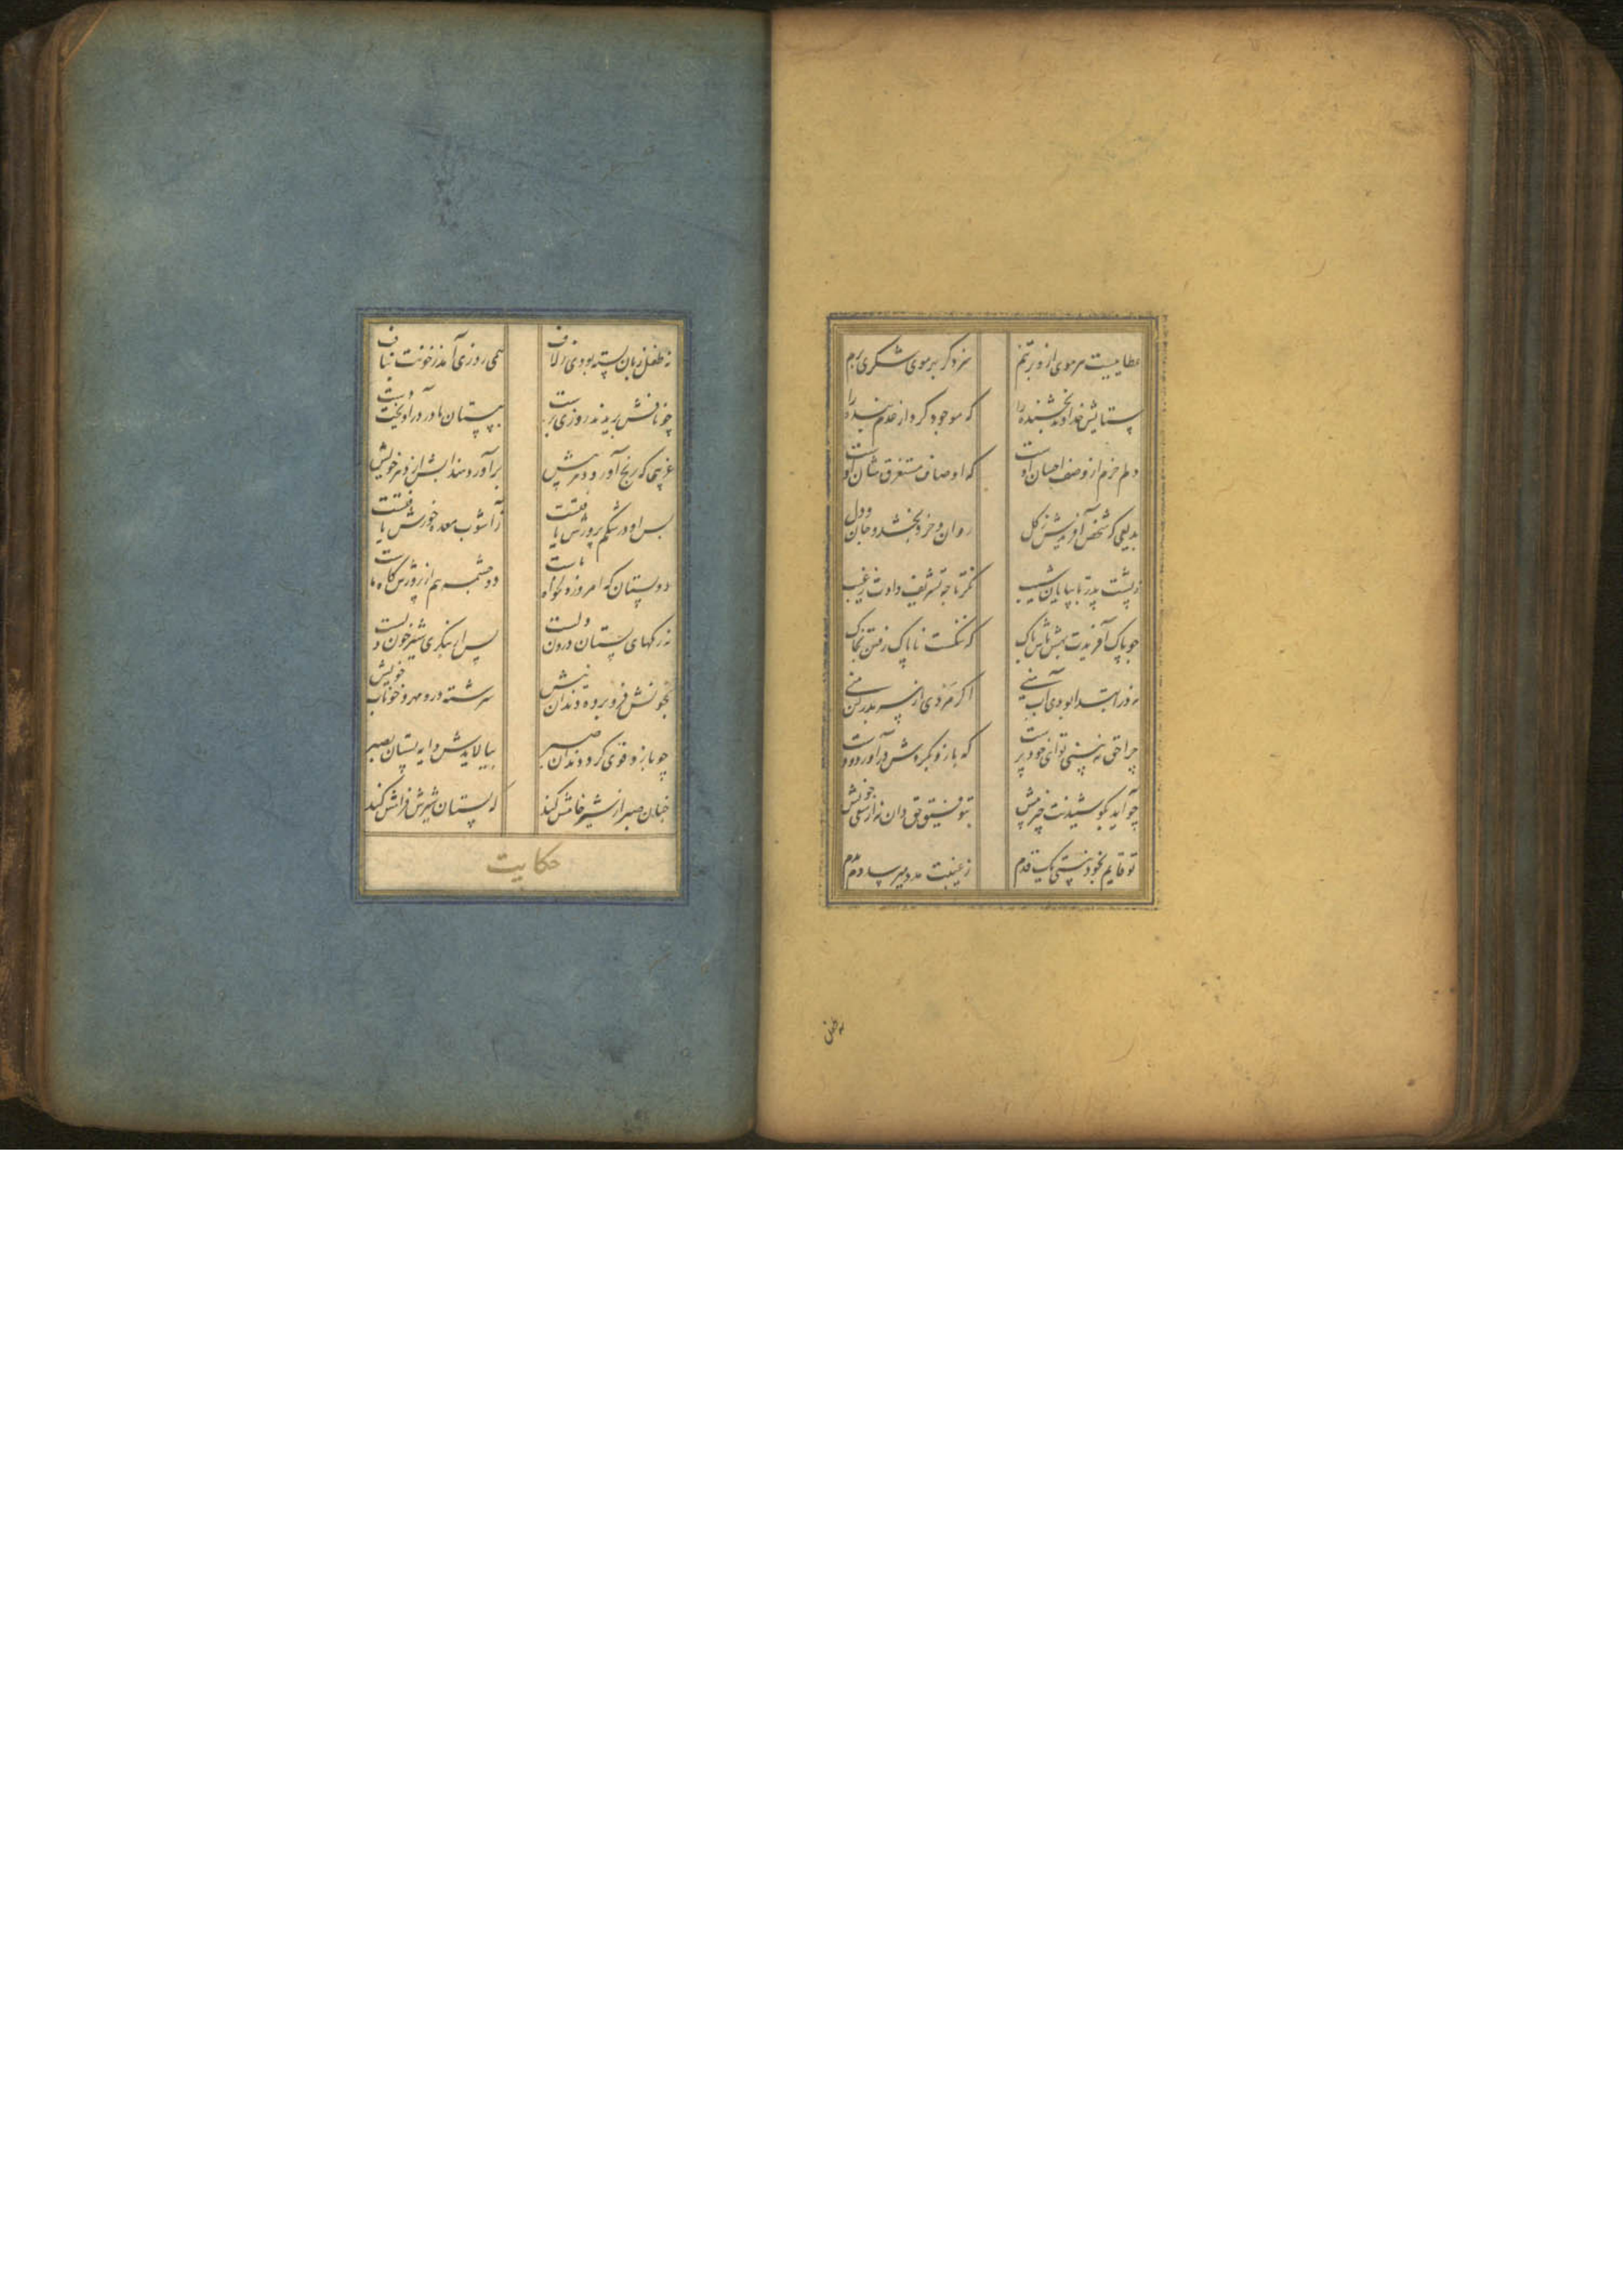 عطاییست هر موی ازو بر تنم سزد کر بهر موی شکری کنم
ستایش خداوند بخشنده را که موجود کرد از عدم بنده را
دلم خرم از وصف احسان اوست که اوصاف مستغرق شان اوست
بدیعی که شخص آفریند ز کل روان و خرد بخشد و جان و دل
ز پشت پدر تا بپایان شیب نکر تا چه تشریف دادت ز غیب
چو پاک آفریدت بهش باش و پاک که ننکست ناپاک رفتن بخاک
نه در ابتدا بودی آب منی اکر مردی از سر بدر کن منی
چرا حق نه بینی تو ای خودپرست که بازو بکردش درآورد و دست
چو آید بکوشیدنت خیر پیش بتوفیق حق دان نه از سعی خویش
تو قایم بخود نیستی یک قدم ز غیبت مدد میرسد دم بدم
نه طفلی
نه طفل زبان بسته بودی ز لاف همی روزی آمد ز خونت بناف
چو نافش بریدند روزی کسست به پستان مادر درآویخت دست
غریبی که رنج آورد دهر پیش برآورد هند آبش از شهر خویش
پس او در شکم پرورش یافتست ز آشوب معده خورش یافتست
دو پستان که امروز دلخواه ماست دو چشمه هم از پرورش کاه ماست
نه رکهای پستان درون دلست پس ار بنکری شیر خون دلست
بخونش فرو برده دندان چو نیش سرشته درو مهر خونخواب خویش
چو بازو قوی کرد و دندان ستبر بیالایدش دایه پستان بصبر
چنان صبر از شیر خامش کند که پستان شیرین فرامش کند
حکایت